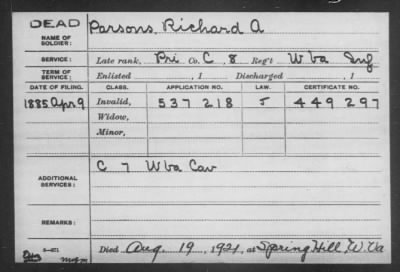 DEAD
NAME OF SOLDIER: Parsons, Richard A
SERVICE: Late rank, Pri Co. C, 8 Reg't W Va Inf
TERM OF SERVICE: Enlisted , 1 Discharged , 1
DATE OF FILING. CLASS. APPLICATION NO. LAW. CERTIFICATE NO.
1885 Apr 9 Invalid, 537 218 J 449 297
Widow,
Minor,
ADDITIONAL SERVICES: C 7 W Va Cav
REMARKS:
Died Aug. 19, 1921, at Spring Hill, W. Va
mgm